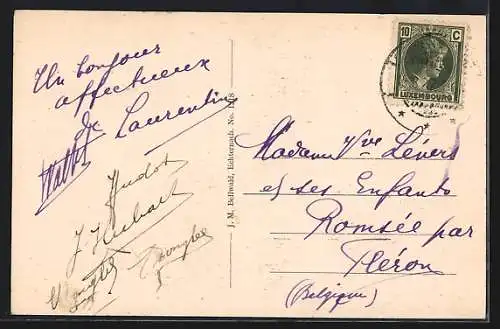 Un bonjour
affectueux
de Laurentin
J. Hubart
J. M. Bellwald, Echternach. No.
10 C
LUXEMBOURG
Madame Vve Lévers
et ses Enfants
Romsée par
Fléron
(Belgique)